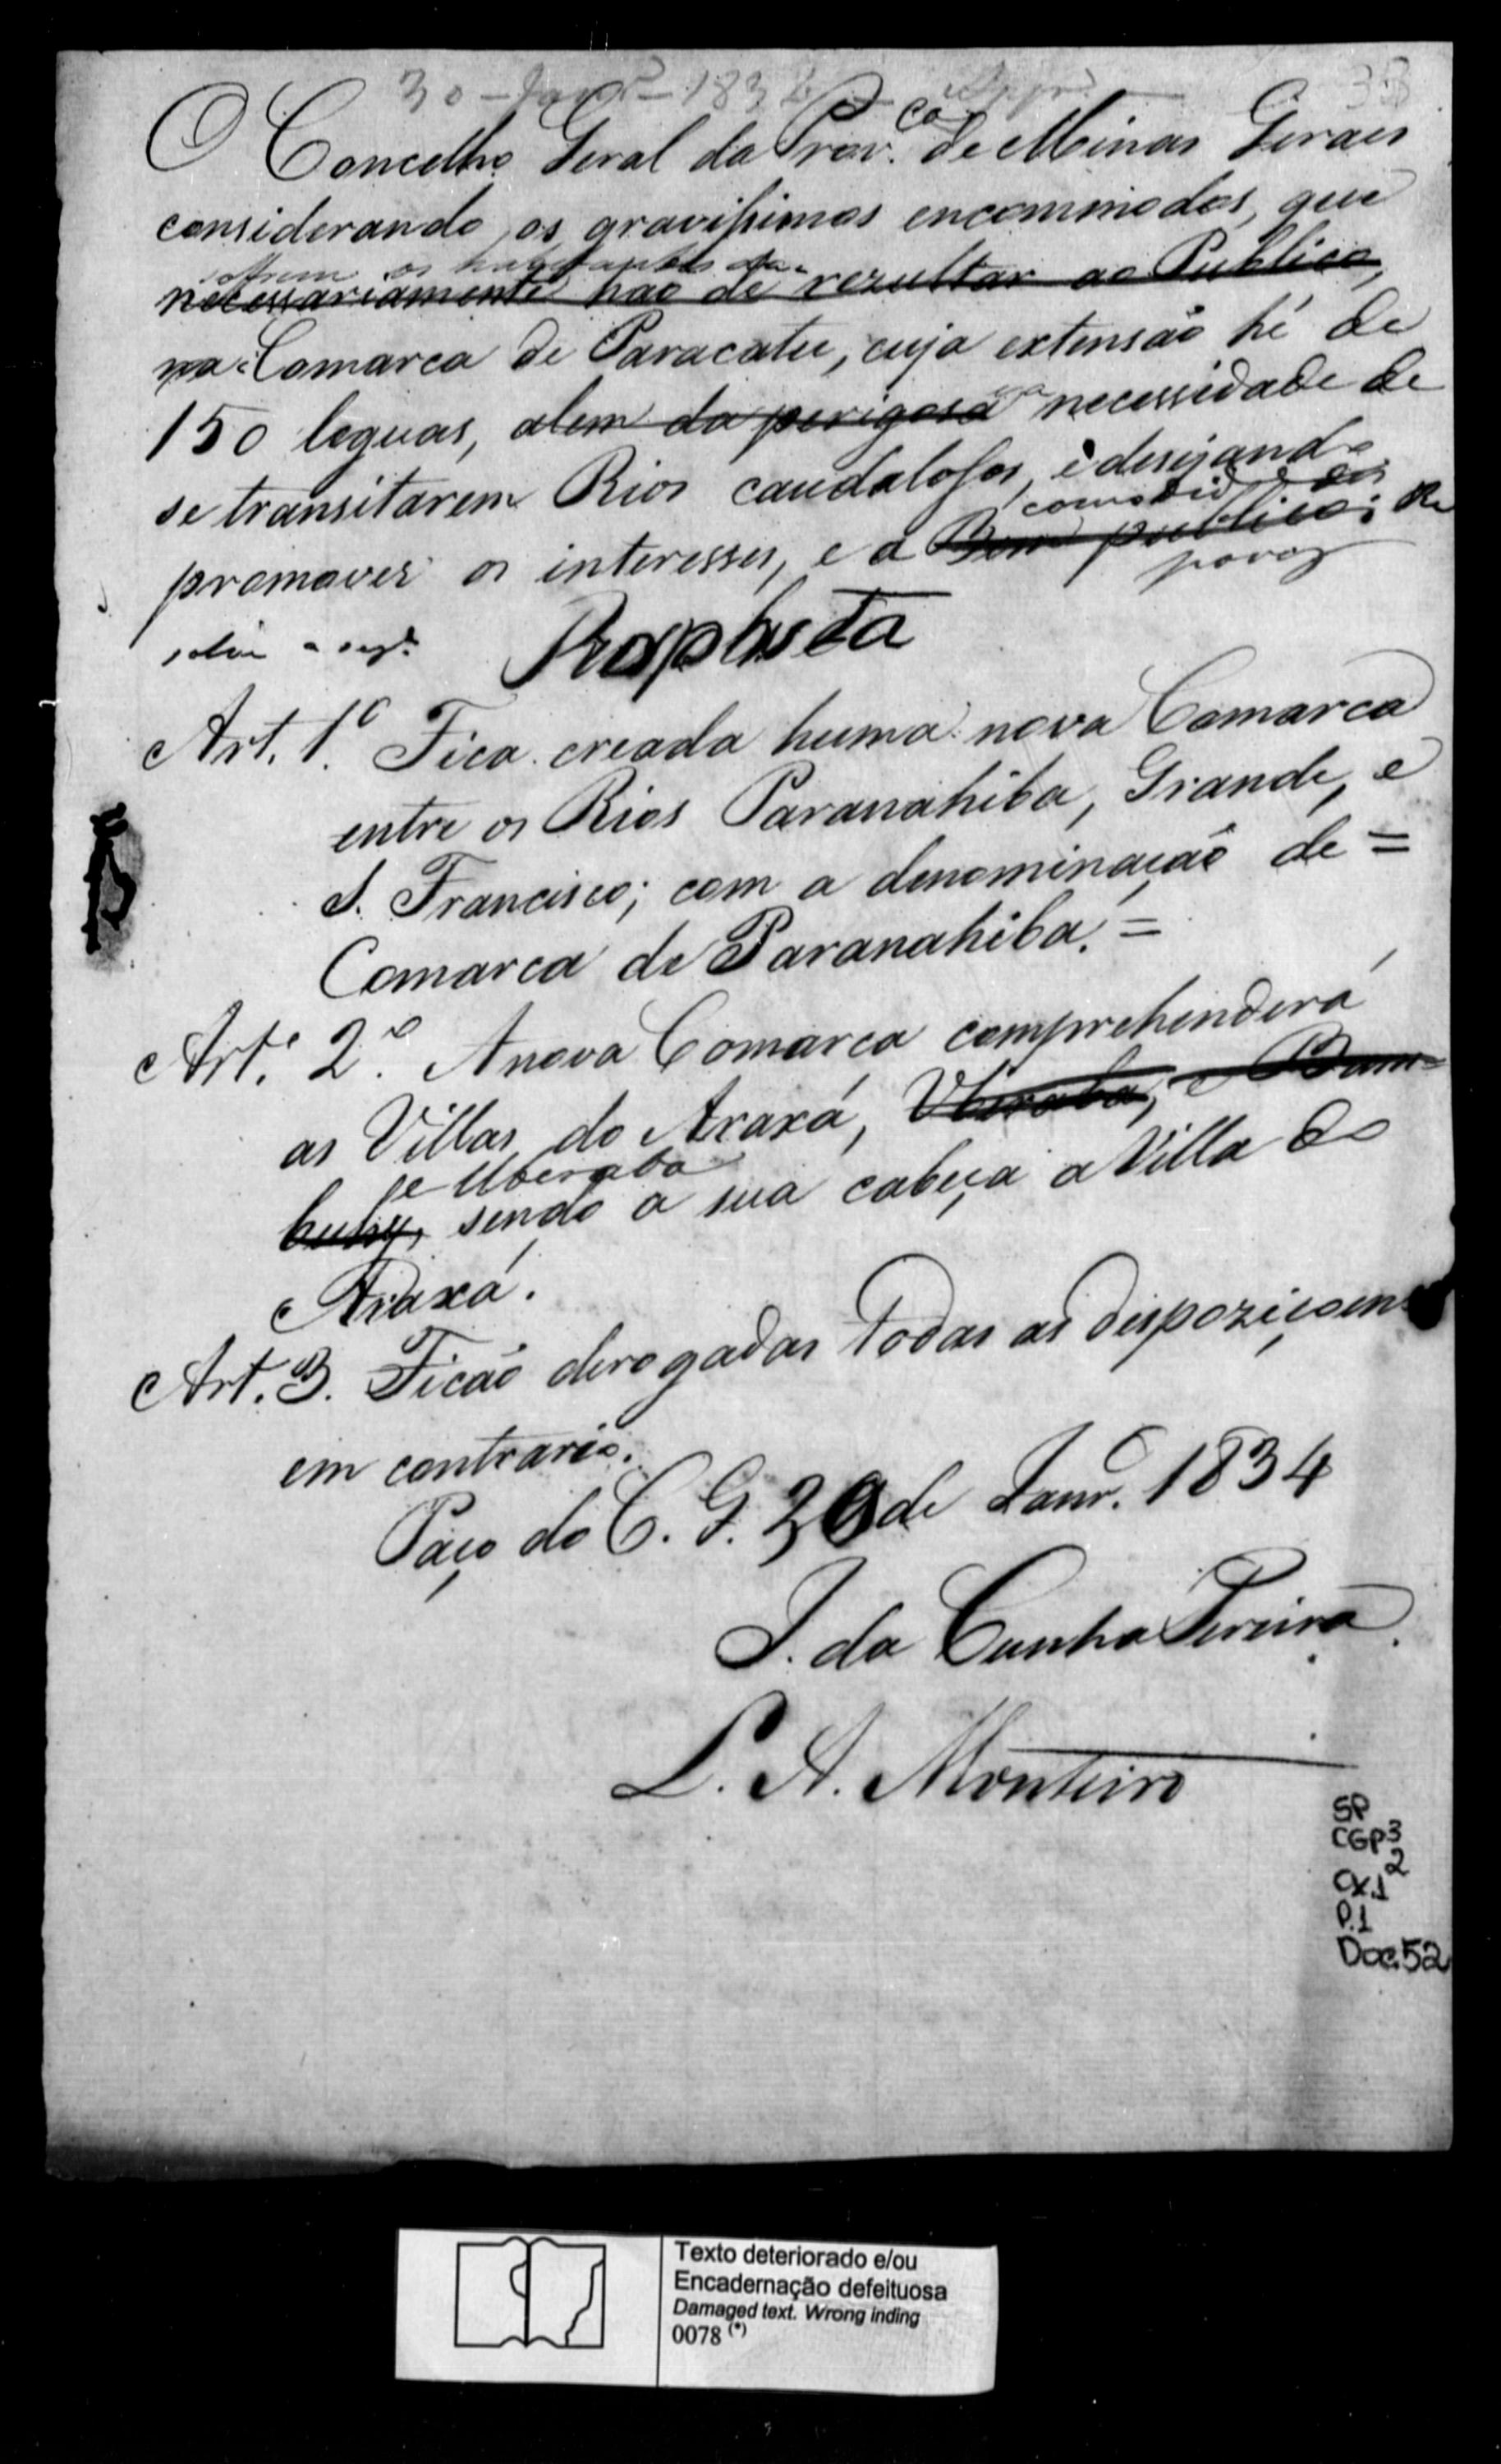 30 - Janr.o - 183
33
O Concelho Geral da Prov.ca de Minas Geraes
considerando os gravissimos encommodos, que
soffrem os habitantes da
necessariamente hao de rezultar ao Publico,
na Comarca de Paracatu, cuja extensão hé de
150 leguas, alem da perigosa necessidade de
se transitarem Rios caudalosos, e desejando
comodid.e dos
promover os interesses, e a Bem publico; Re
povos
solve o seg.te
Proposta
Art. 1.o Fica creada huma nova Comarca
entre os Rios Paranahiba, Grande, e
S. Francisco; com a denominação de =
Comarca de Paranahiba. =
Art. 2.o A nova Comarca comprehenderá
as Villas do Araxá, Uberaba, e Bam=
e Uberaba
buhy, sendo a sua cabeça a Villa do
Araxá.
Art. 3. Ficão derogadas todas as dispoziçoens
em contrario.
Paço do C. G. 30 de Janr.o 1834
J. da Cunha Pereira.
L. A. Monteiro
SP
CGP3
2
Cx.1
P.1
Doc.52
Texto deteriorado e/ou
Encadernação defeituosa
Damaged text. Wrong inding
0078 (*)